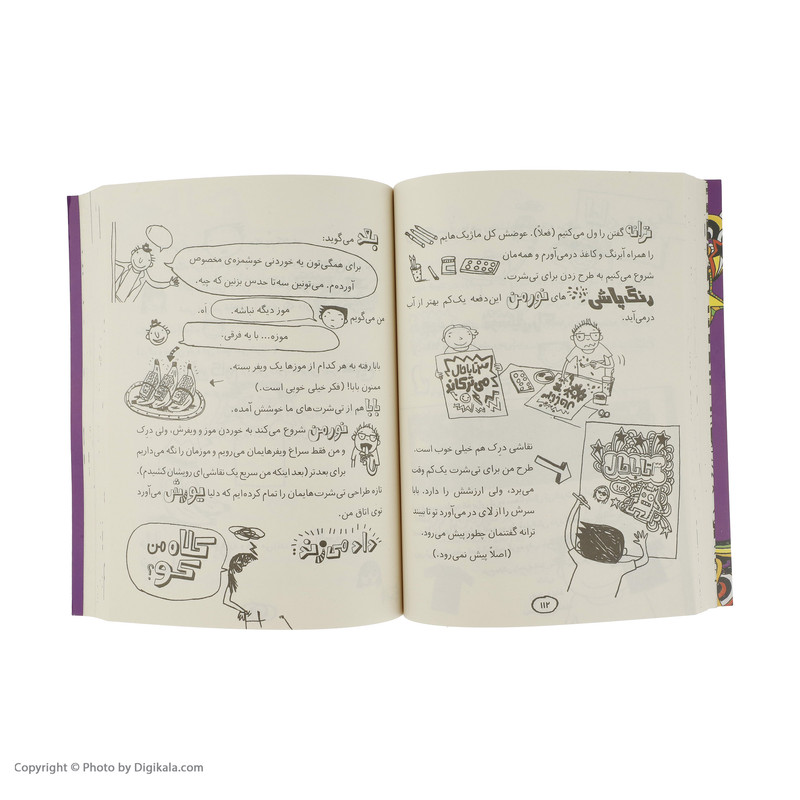 ترانه گفتن را ول می‌کنیم (فعلاً). عوضش کل ماژیک‌هایم
را همراه آبرنگ و کاغذ درمی‌آورم و همه‌مان
شروع می‌کنیم به طرح زدن برای تی‌شرت.
رنگ‌پاشی های نورمن این‌دفعه یک‌کم بهتر از آب
درمی‌آید.
سه تا باحال
می‌ترکاند
نقاشی درِک هم خیلی خوب است.
طرح من برای تی‌شرت یک‌کم وقت
می‌برد، ولی ارزشش را دارد. بابا
سرش را از لای در می‌آورد تو تا ببیند
ترانه گفتنمان چطور پیش می‌رود.
(اصلاً پیش نمی‌رود.)
۳ تا باحال
۱۱۲
بابا می‌گوید:
برای همگی‌تون یه خوردنی خوشمزه‌ی مخصوص
آورده‌م. می‌تونین سه‌تا حدس بزنین که چیه.
من می‌گویم
موز دیگه نباشه.
اَه.
موزه... با یه فرقی.
بابا رفته به هر کدام از موزها یک ویفر بسته.
ممنون بابا! (فکر خیلی خوبی است.)
بابا هم از تی‌شرت‌های ما خوشش آمده.
نورمن شروع می‌کند به خوردن موز و ویفرش، ولی درِک
و من فقط سراغ ویفرهایمان می‌رویم و موزمان را نگه می‌داریم
برای بعدتر (بعد اینکه من سریع یک نقاشی‌ای رویشان کشیدم).
تازه طراحی تی‌شرت‌هایمان را تمام کرده‌ایم که دلیا یورش می‌آورد
توی اتاق من.
داد می‌زند:
کلاه من
کو؟
Copyright © Photo by Digikala.com